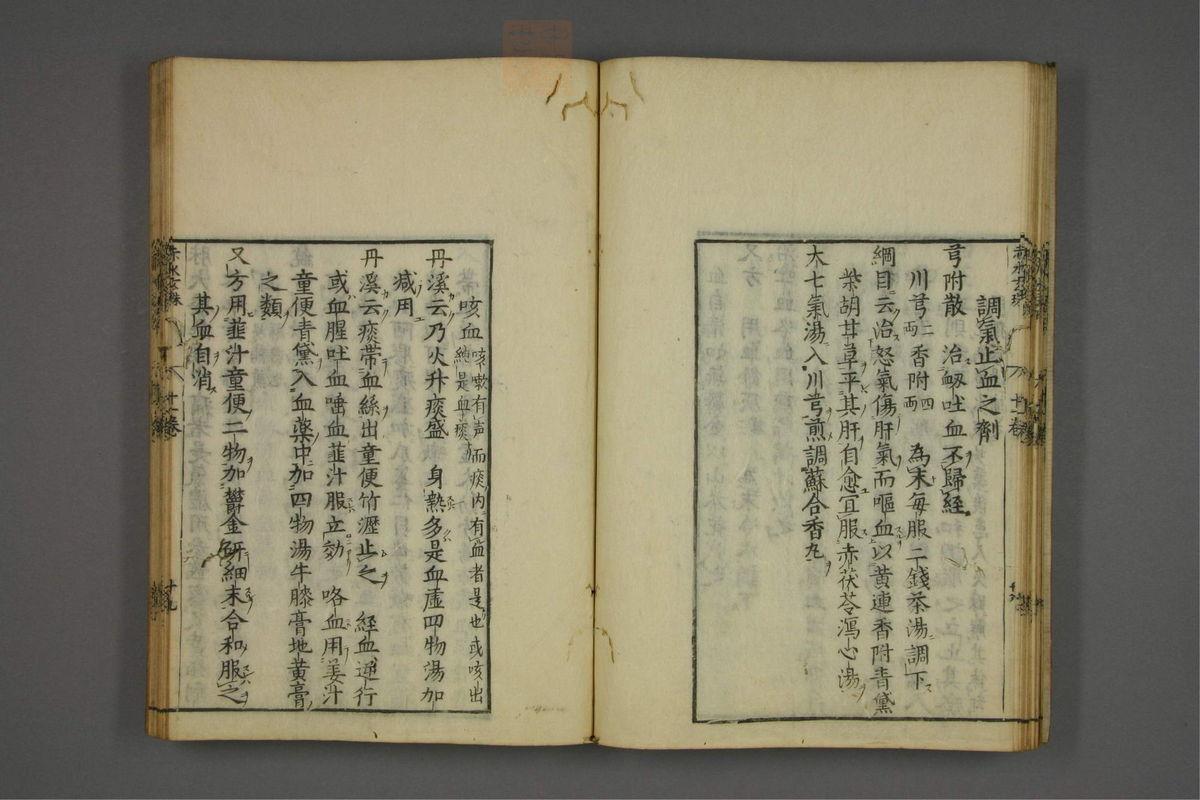 調氣止血之劑
芎附散　治衂吐血不歸経
川芎二両　香附四両　為末毎服二錢茶湯調下
綱目云治怒氣傷肝氣而嘔血以黄連香附青黛
柴胡甘草平其肝自愈宜服赤茯苓瀉心湯
大七氣湯入川芎煎調蘇合香丸
咳血　咳嗽有声而痰内有血者是也或咳出
純是血痰
丹溪云乃火升痰盛　身熱多是血虚四物湯加
減用
丹溪云痰帶血絲出童便竹瀝止之　経血逆行
或血腥吐血唾血韮汁服立効　咯血用姜汁
童便青黛入血薬中加四物湯牛膝膏地黄膏
之類
又方用韮汁童便二物加欝金研細末合和服之
其血自消